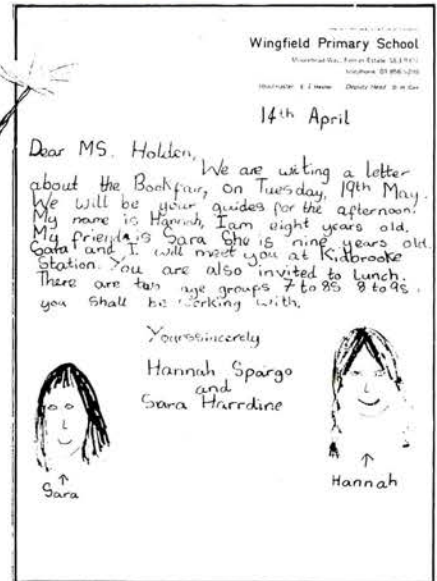 Wingfield Primary School
14th April
Dear MS. Holden,
We are witing a letter
about the Bookfair, on Tuesday, 19th May.
We will be your guides for the afternoon.
My name is Hannah, I am eight years old.
My friends is Sara She is nine years old.
Sara and I will meet you at Kidbrooke
Station. You are also invited to Lunch.
There are two age groups 7 to 8s 8 to 9s.
you shall be working with.
Yourssincerely
Hannah Spargo
and
Sara Harrdine
Sara
Hannah